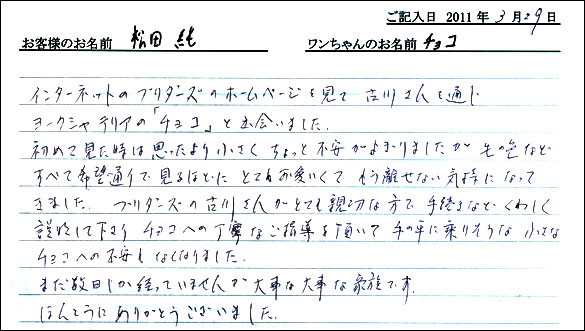 ご記入日 2011年 3月29日
お客様のお名前 松田 純 ワンちゃんのお名前 チョコ
インターネットのブリーダーズのホームページを見て 古川さんを通じ
ヨークシャテリアの「チョコ」と出会いました.
初めて見た時は思ったより小さく ちょっと不安がよぎりましたが 毛の色など
すべて希望通りで 見るほどに とても可愛いくて もう離せない気持になって
きました. ブリーダーズの古川さんがとても親切な方で 手続きなど くわしく
説明して下さり チョコへの丁寧なご指導を頂いて 手の平に乗りそうな 小さな
チョコへの不安もなくなりました.
まだ数日しか経っていませんが 大事な大事な家族です.
ほんとうにありがとうございました.